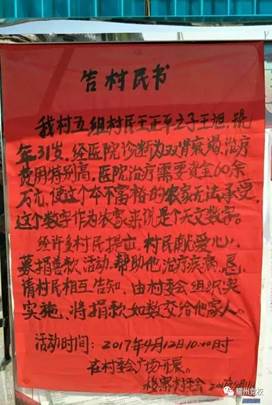 告村民书
我村五组村民王正平之子王旭，现
年31岁，经医院诊断为双肾衰竭，治疗
费用特别高，医院治疗需要资金60余
万元，使这个本不富裕的农家无法承受，
这个数字作为农家来说是个天文数字。
经许多村民提议，村民献爱心，
募捐善款活动，帮助他治疗疾病，恳
请村民相互告知，由村委会组织
实施，将捐款如数交给他家人。
活动时间：2017年4月12日10:00时
在村委会广场开展。
村委会